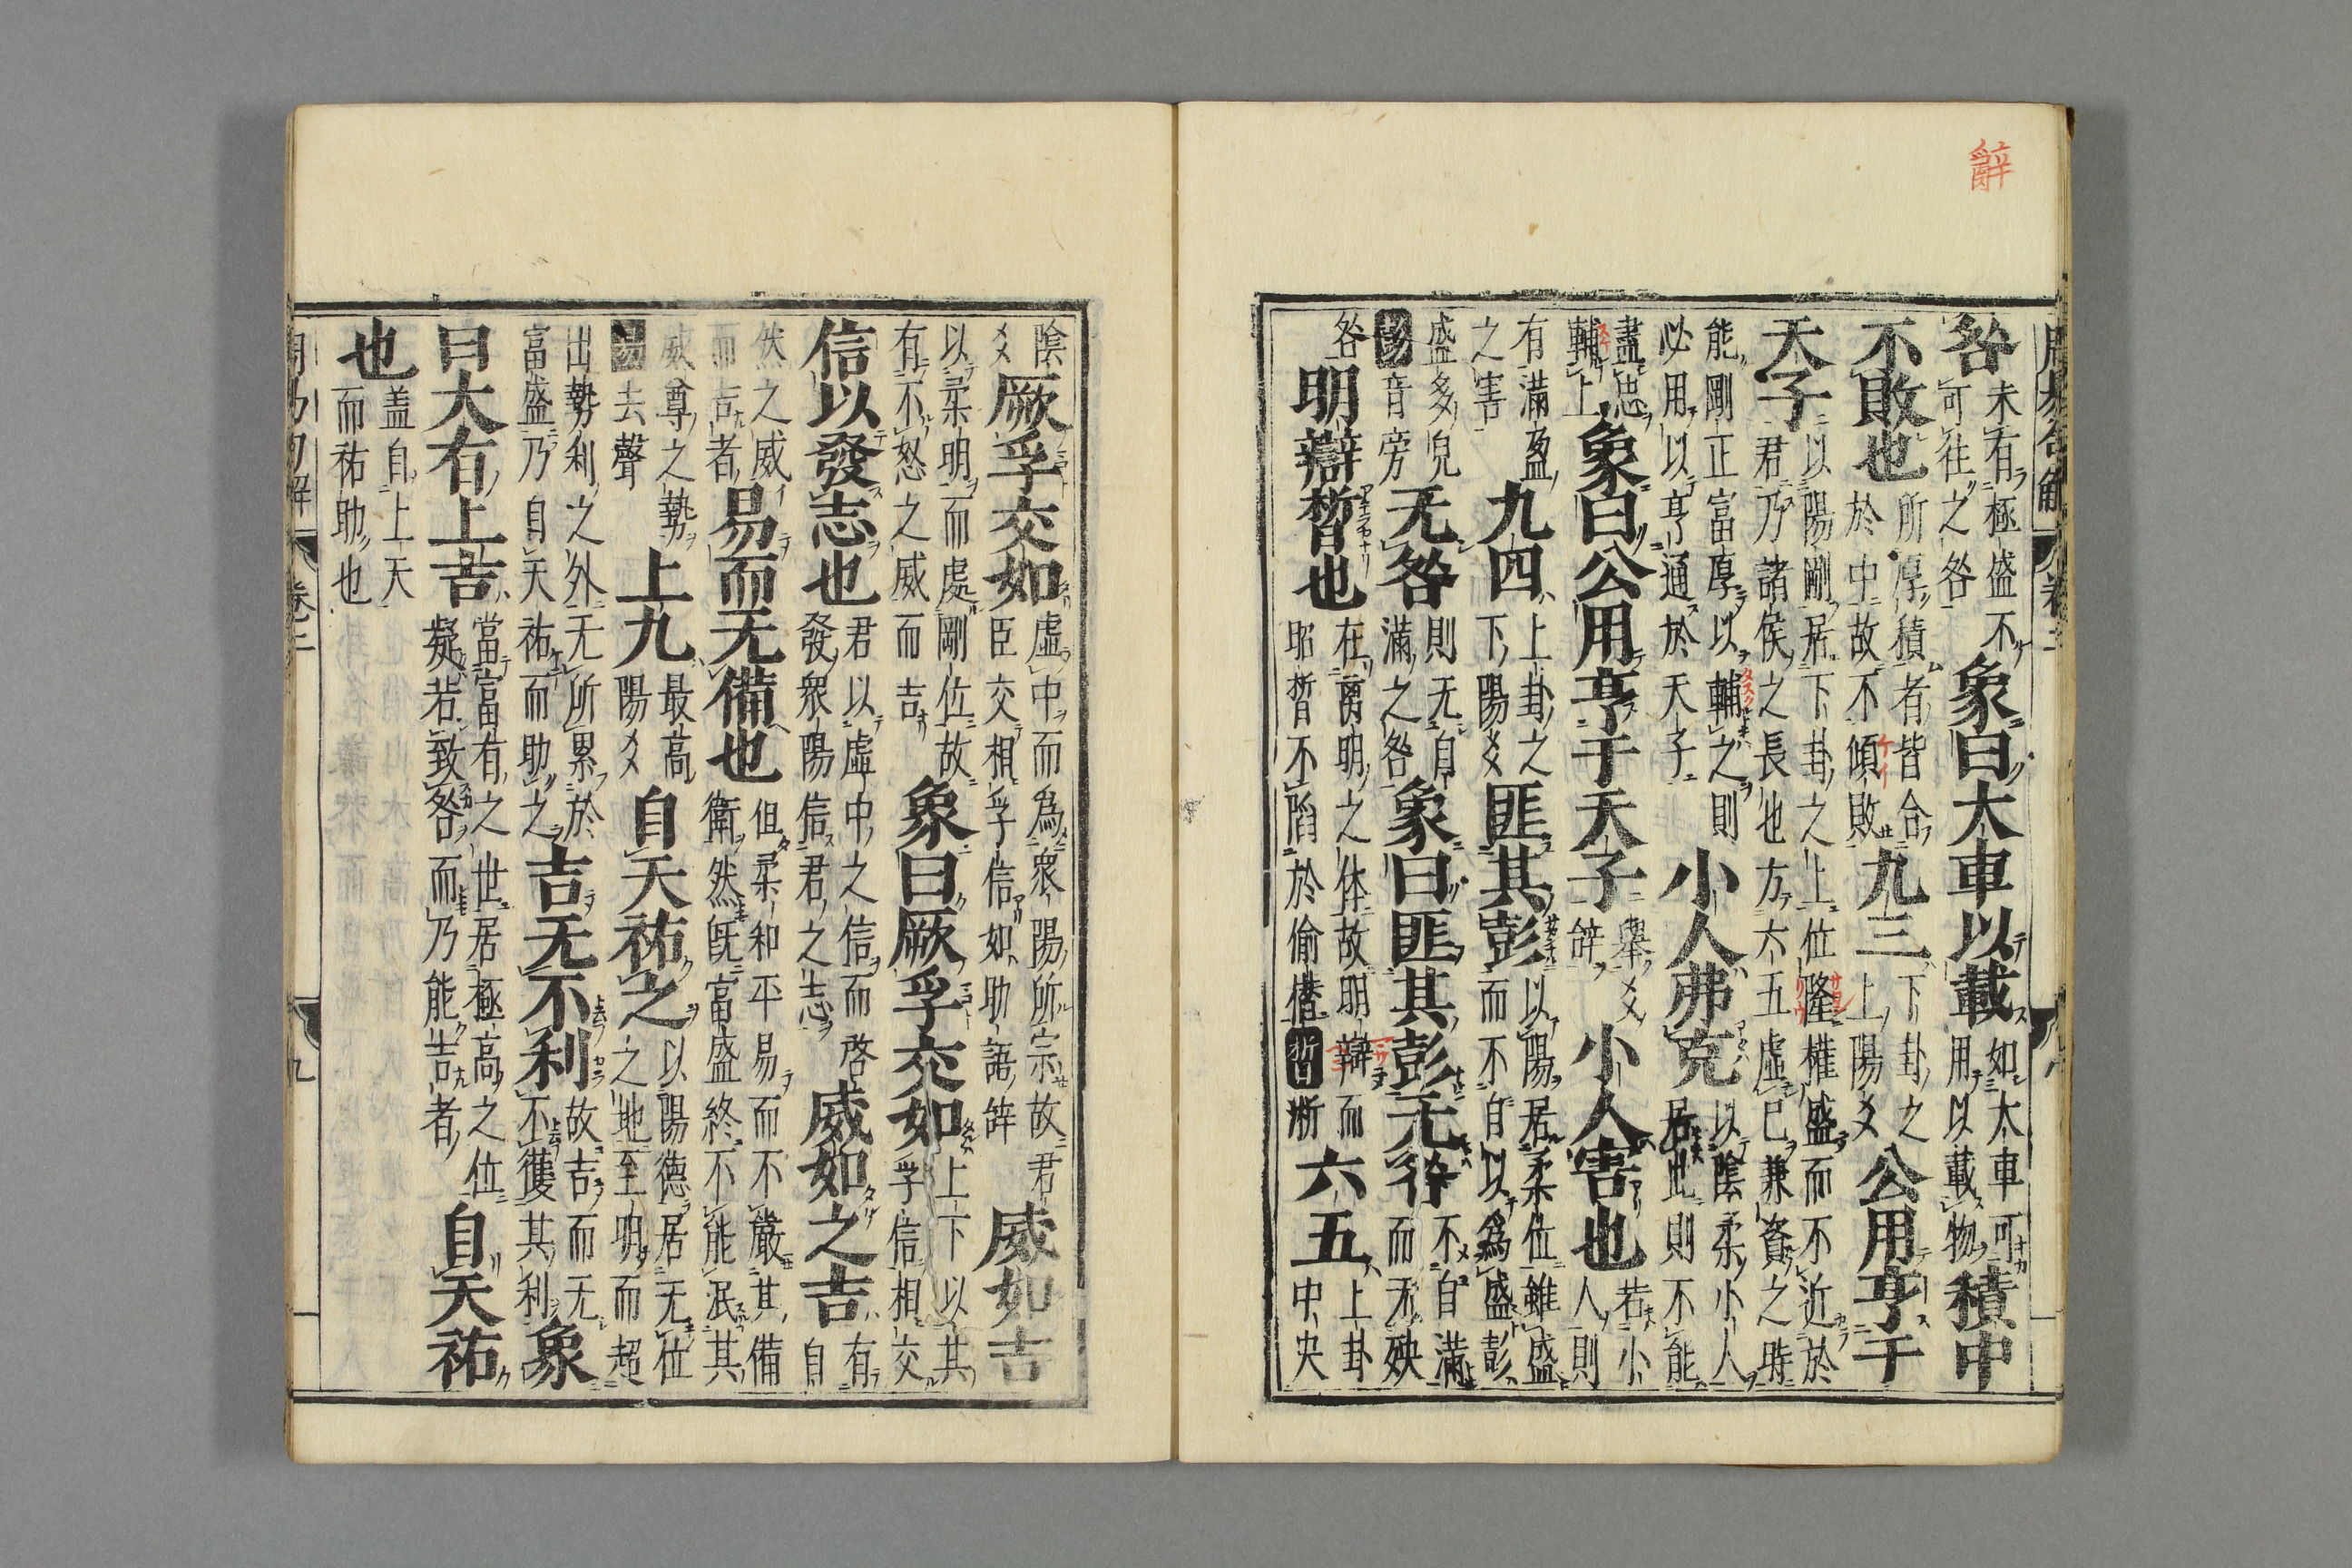 辭
周易句解 卷二
咎未有極盛不可往之咎象曰大車以載如大車可用以載物積中
不敗也所厚積者皆合於中故不傾敗九三下卦之上陽爻公用亨于
天子以陽剛居下卦之上位隆權盛而不近於君乃諸侯之長也方六五虛已兼資之時
能剛正富厚以輔之則必用以亨通於天子小人弗克以陰柔小人居此則不能
盡忠輔上象曰公用亨于天子舉爻辞小人害也若小人則
有滿盈之害九四上卦之下陽爻匪其彭以陽居柔位雖盛而不自以為盛彭
盛多皃彭音旁无咎則无自滿之咎象曰匪其彭无咎不自滿而无殃
咎明辯晳也在离明之体故明辯而昭晳不陷於偷僣晳淅六五上卦中央
陰爻厥孚交如虛中而為衆陽所宗故君臣交相孚信如助語辞威如吉
以柔明而處剛位故有不怒之威而吉象曰厥孚交如上下以其孚信相交
信以發志也君以虛中之信而啓發衆陽信君之志威如之吉有自
然之威而吉者易而无備也但柔和平易而不嚴其備衛然既富盛終不能泯其
威尊之勢易去聲上九最高陽爻自天祐之以陽德居无位之地至明而超
出勢利之外无所累於富盛乃自天祐而助之吉无不利故吉而无不獲其利象
曰大有上吉當富有之世居極高之位疑若致咎而乃能吉者自天祐
也盖自上天而祐助也
周易句解 卷二 九